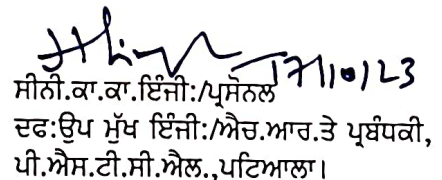 17/10/23
ਸੀਨੀ.ਕਾ.ਕਾ.ਇੰਜੀ:/ਪ੍ਰਸੋਨਲ
ਦਫ:ਉਪ ਮੁੱਖ ਇੰਜੀ:/ਐਚ.ਆਰ.ਤੇ ਪ੍ਰਬੰਧਕੀ,
ਪੀ.ਐਸ.ਟੀ.ਸੀ.ਐਲ.,ਪਟਿਆਲਾ।